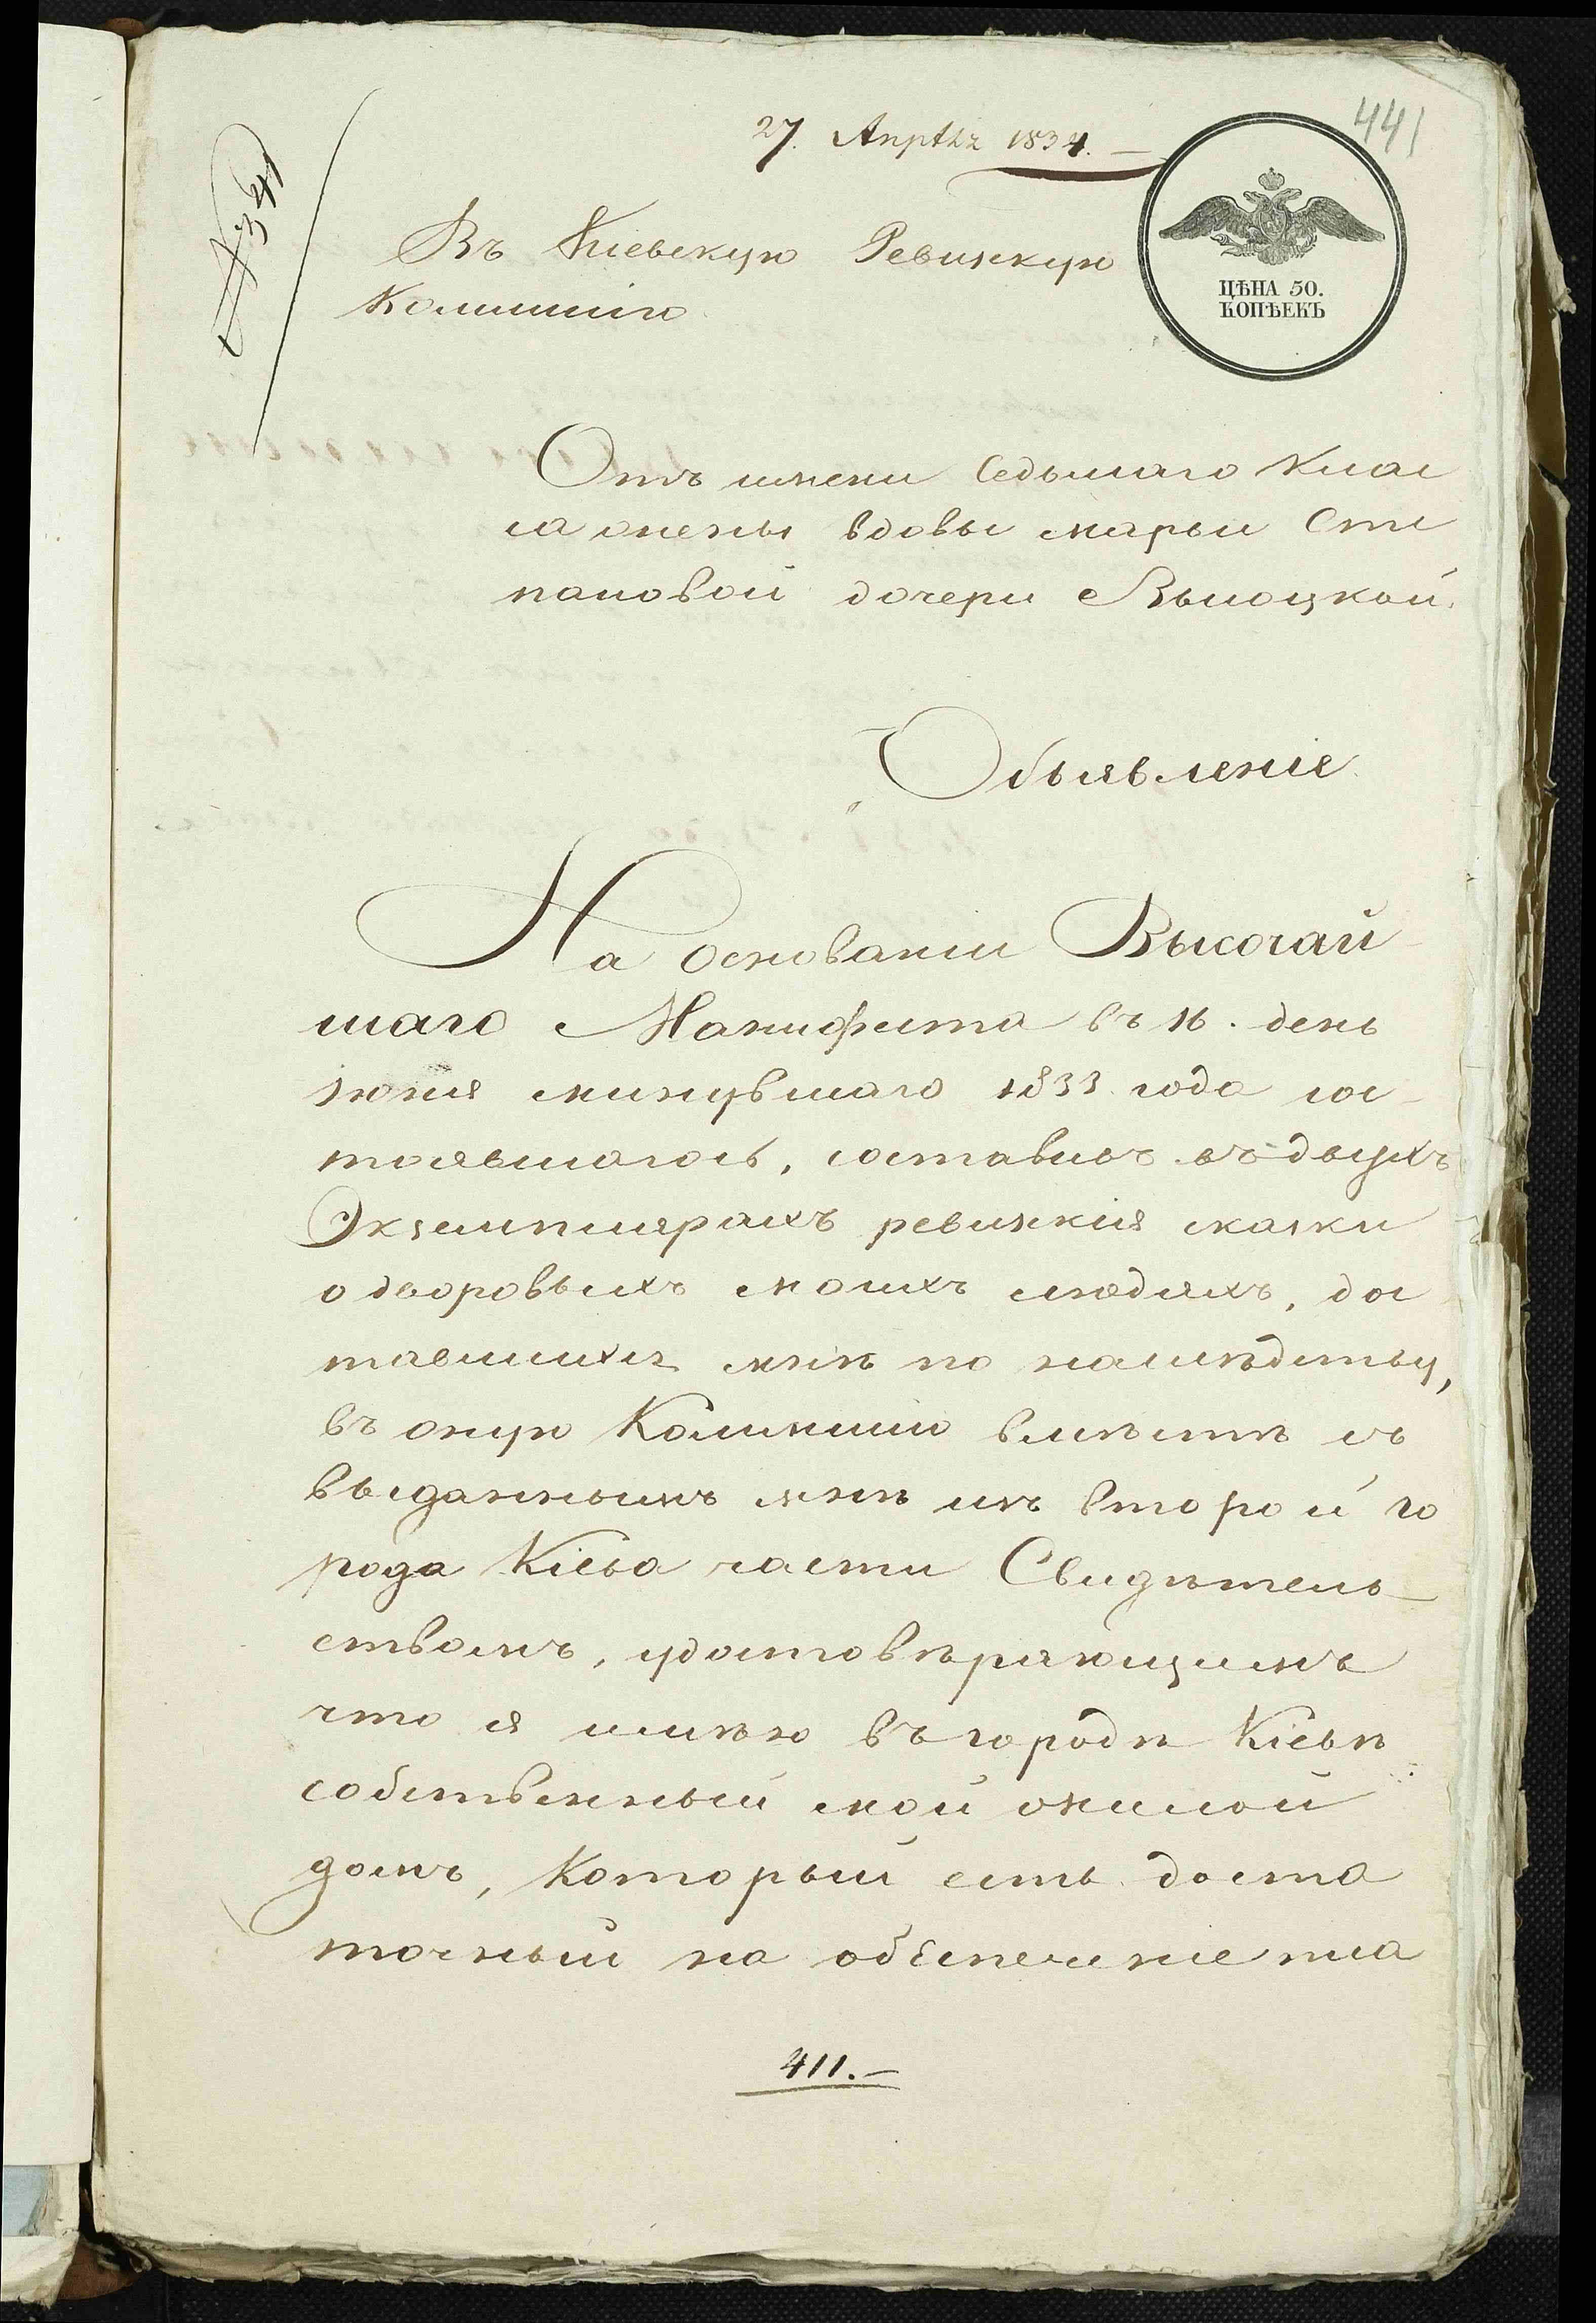 441
27. Апрѣлѧ 1834.
№ 341
Въ Кіевскую Ревизскую
Коммисію
ЦѢНА 50.
КОПѢЕКЪ
Отъ имени Седьмаго Клас
са жены вдовы марьи Сте
пановой дочери Высоцкой.
Объявленіе
На основаніи Высочай
шаго Манифеста въ 16. день
Іюня минувшаго 1833 года сос
тоявшагось, составивъ въ двухъ
Экземплярахъ ревизкія сказки
о дворовыхъ моихъ людяхъ, дос
тавшихся мнѣ по наслѣдству,
въ оную Коммисію вмѣстѣ съ
выданнымъ мнѣ изъ второй го
рода Кіева части Свидѣтель
ствомъ, удостовѣряющимъ
что я имѣю въ городѣ Кіевѣ
собственный мой жилой
домъ, который есть доста
точный на обеспеченіе пла
411.